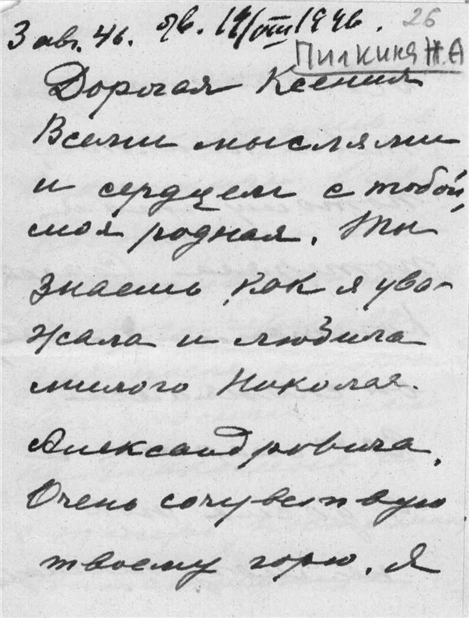 3 авг. 46. отв. 14/VIII 1946. 26
Пилкина М. А
Дорогая Ксения
Всеми мыслями
и сердцем с тобой,
моя родная. Ты
знаешь как я ува-
жала и любила
милого Николая
Александровича.
Очень сочувствую
твоему горю. Я